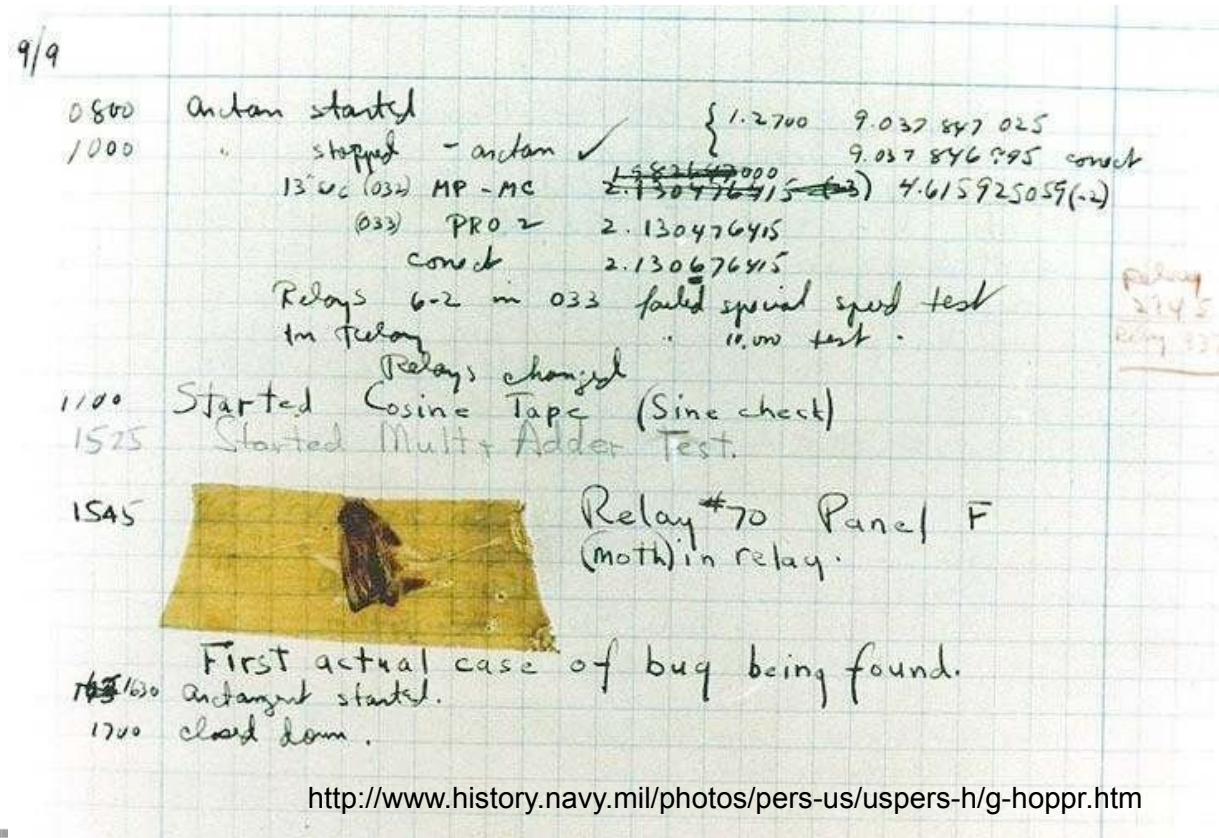 9/9
0800 arctan started { 1.2700 9.037 847 025
1000 " stopped - arctan ✓ 9.037 846 995 correct
(032) MP - MC 2.130476415 4.615925059(-2)
(033) PRO 2 2.130476415
correct 2.130676415
Relays 6-2 in 033 failed special speed test
In relay " 10,000 test .
Relays changed
1100 Started Cosine Tape (Sine check)
1525 Started Mult + Adder Test.
1545 Relay #70 Panel F
(moth) in relay.
First actual case of bug being found.
1630 arctangent started.
1700 closed down.
relay
Relay 337
http://www.history.navy.mil/photos/pers-us/uspers-h/g-hoppr.htm